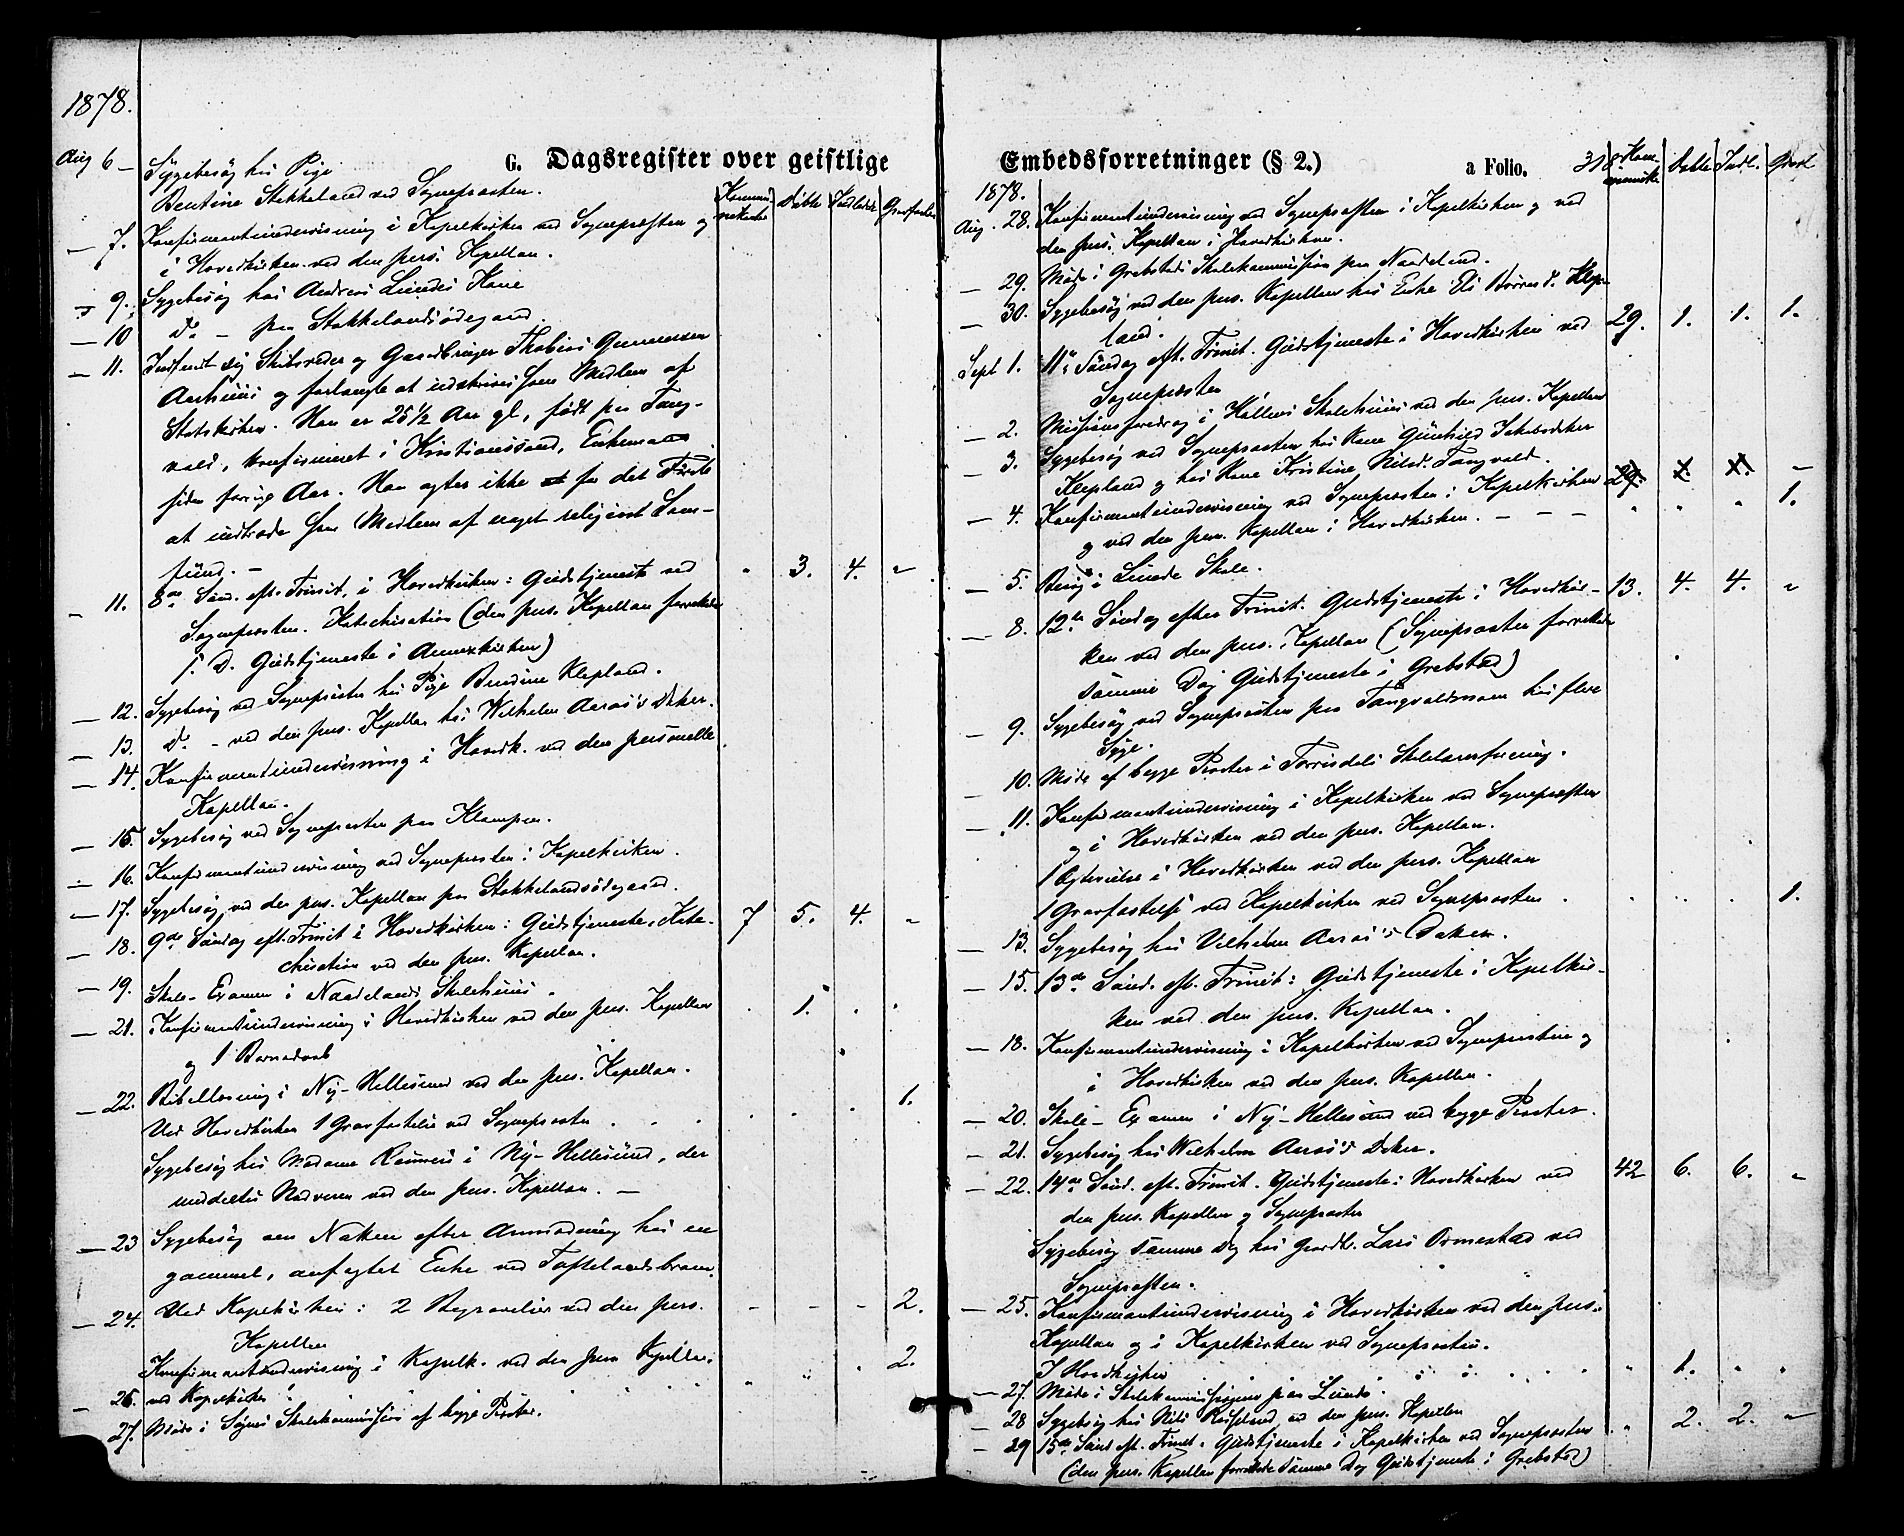 1878.
G. Dagsregister over geistlige
Kommunikanter Døbte Indledede Gravfæstede
Aug 6 — Sygebesøg hos Pige
Bentine Stokkeland ved Sognepræsten.
— 7. Konfirmantundervisning i Kapelkirken ved Sognepræsten og
i Hovedkirken ved den pers. Kapellan.
— 9. Sygebesøg hos Andreas Lundes Kone
— 10 Do — paa Stokkelandsødegaard.
— 11. Indfandt sig Skibsreder og Gaardbruger Thobias Gunnersen
Aarhuus og forlangte at indskrives som Medlem af
Statskirken. Han er 25 1/2 Aar gl., født paa Tang-
vald, konfirmeret i Kristianssand, Enkemand
siden forrige Aar. Han agter ikke for det Første
at indtræde som Medlem af noget religiøst Sam-
fund. — " 3. 4. "
— 11. 8de Sønd. eft. Trinit. i Hovedkirken: Gudstjeneste ved
Sognepræsten. Katechisation (den pers. Kapellan forrettede
s. D. Gudstjeneste i Annexkirken)
— 12. Sygebesøg ved Sognepræsten hos Pige Bendine Klepland.
— 13. Do — ved den pers. Kapellan hos Wilhelm Aarøs's Datter.
— 14. Konfirmantundervisning i Hovedk. ved den personelle
Kapellan.
— 15. Sygebesøg ved Sognepræsten paa Klampen.
— 16. Konfirmantundervisning ved Sognepræsten i Kapelkirken.
— 17. Sygebesøg ved den pers. Kapellan paa Stokkelandsødegaard.
— 18. 9de Søndag eft. Trinit i Hovedkirken: Gudstjeneste, Kate- 7 5. 4. "
chisation ved den pers. Kapellan.
— 19. Skole-Examen i Naadelands Skolehuus.
— 21. Konfirmantundervisning i Hovedkirken ved den pers. Kapellan . 1. . .
og 1 Barnedaab
— 22. Bibellæsning i Ny-Hellesund ved den pers. Kapellan.
Ved Hovedkirken 1 Gravfæstelse ved Sognepræsten . . . 1.
Sygebesøg hos Madame in Ny-Hellesund, der
meddeltes Nadveren ved den pers. Kapellan. —
— 23 Sygebesøg om Natten efter Anmodning hos en
gammel, anfægtet Enke ved Toftelandsbroen.
— 24. Ved Kapelkirken: 2 Begravelser ved den pers. — — — 2.
Kapellan
Konfirmantundervisning i Kapelk. ved den pers Kapellan.
— 26. ved Kapelkirken " " " 2.
27. Møde i Søgne Skolekommission af begge Præster.
Embedsforretninger (§ 2.)
a Folio. 318
Kommunik. Døbte Indl. Gravf.
1878.
Aug. 28. Konfirmantundervisning ved Sognepræsten i Kapelkirken og ved
den pers. Kapellan i Hovedkirken.
— 29. Møde i Grebstads Skolekommission paa Naadeland.
— 30. Sygebesøg ved den pers. Kapellan hos Enke Els Børresd. Klep-
land.
Sept 1. 11te Søndag eft. Trinit. Gudstjeneste i Hovedkirken ved 29. 1. 1. 1.
Sognepræsten
— 2. Missionsforedrag i Hølle's Skolehuus ved den pers. Kapellan
— 3. Sygebesøg ved Sognepræsten hos Kone Gunhild Jakobsdatter
Klepland og hos Kone Kristine Nilsd. Tangvald.
— 4. Konfirmantundervisning ved Sognepræsten i Kapelkirken 29. 1. 1. —
og ved den pers. Kapellan i Hovedkirken. — — — " " " 1.
— 5. Besøg i Lunde Skole.
— 8. 12te Søndag efter Trinit. Gudstjeneste i Hovedkir- 13. 4. 4. "
ken ved den pers. Kapellan (Sognepræsten forrettede
samme Dag Gudstjeneste i Grebstad)
— 9. Sygebesøg ved Sognepræsten paa Tangvaldsmoen hos flere
Syge.
— 10. Møde af begge Præster i Torrisdals Skolelærerforening.
— 11. Konfirmantundervisning i Kapelkirken ved Sognepræsten
og i Hovedkirken ved den pers. Kapellan.
1 Ægtevielse i Hovedkirken ved den pers. Kapellan
1 Gravfæstelse ved Kapelkirken ved Sognepræsten . . . . 1.
— 13. Sygebesøg hos Vilhelm Aarøs's Datter.
— 15. 13de Sønd. eft. Trinit: Gudstjeneste i Kapelkir-
ken ved den pers. Kapellan.
— 18. Konfirmantundervisning i Kapelkirken ved Sognepræsten og
i Hovedkirken ved den pers. Kapellan.
— 20. Skole-Examen i Ny-Hellesund ved begge Præster.
— 21. Sygebesøg hos Wilhelm Aarøs's Datter.
— 22. 14de Sønd. eft. Trinit. Gudstjeneste i Hovedkirken ved 42 6. 6. "
den pers. Kapellan og Sognepræsten
Sygebesøg samme Dag hos Gaardb. Lars Ormestad ved
Sognepræsten.
— 25. Konfirmantundervisning i Hovedkirken ved den pers.
Kapellan og i Kapelkirken ved Sognepræsten.
I Hovedkirken . . . . " 1. " "
— 27. Møde i Skolekommissionen paa Lunde.
— 28 Sygebesøg hos Nils ved den pers. Kapellan
— 29 15de Sønd eft. Trinit. Gudstjeneste i Kapelkirken ved Sognepræsten . " 2. 2. "
(den pers. Kapellan forrettede samme Dag Gudstjeneste i Grebstad)